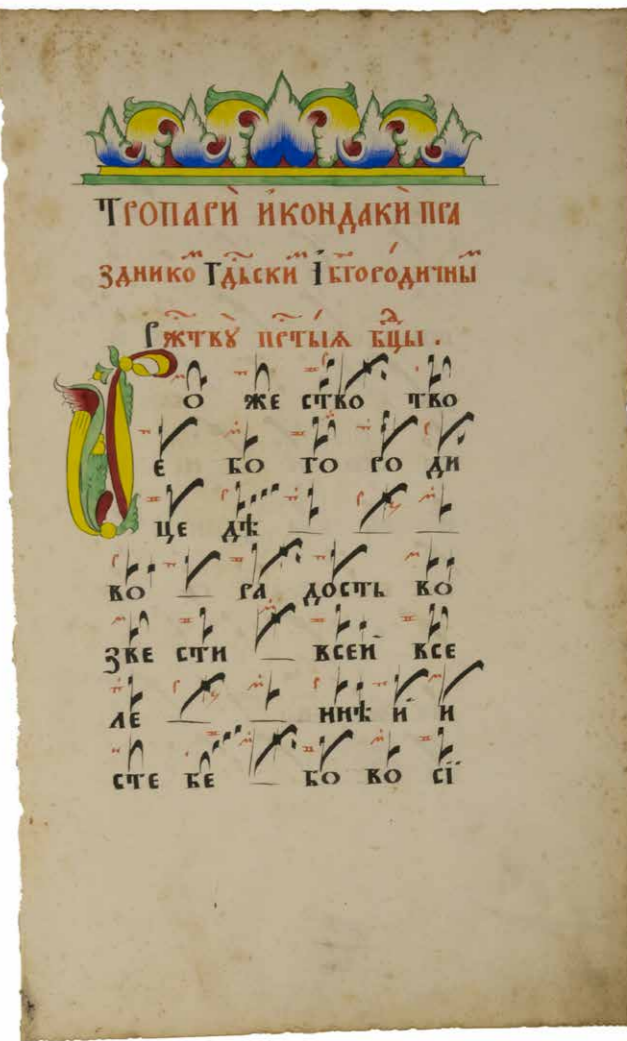 Тропарѝ и҆кондакѝ пра
здникоⷨ гдⷭ҇ьскиⷨ і҆бг҃оро́дичныⷨ
Ржⷭ҇твꙋ̀ прⷭ҇тыѧ бц҃ы .
о же ство тво
е бо го ро ди
це дѣ
во ра дость во
зве сти всей все
ле нѣ й и
сте бе бо во сї